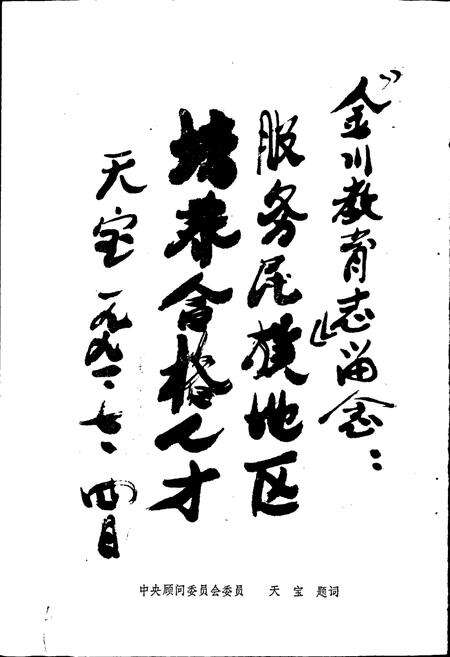 《金川教育志》留念：
服务民族地区
培养合格人才
天宝 一九九一、七、四日
中央顾问委员会委员 天宝 题词